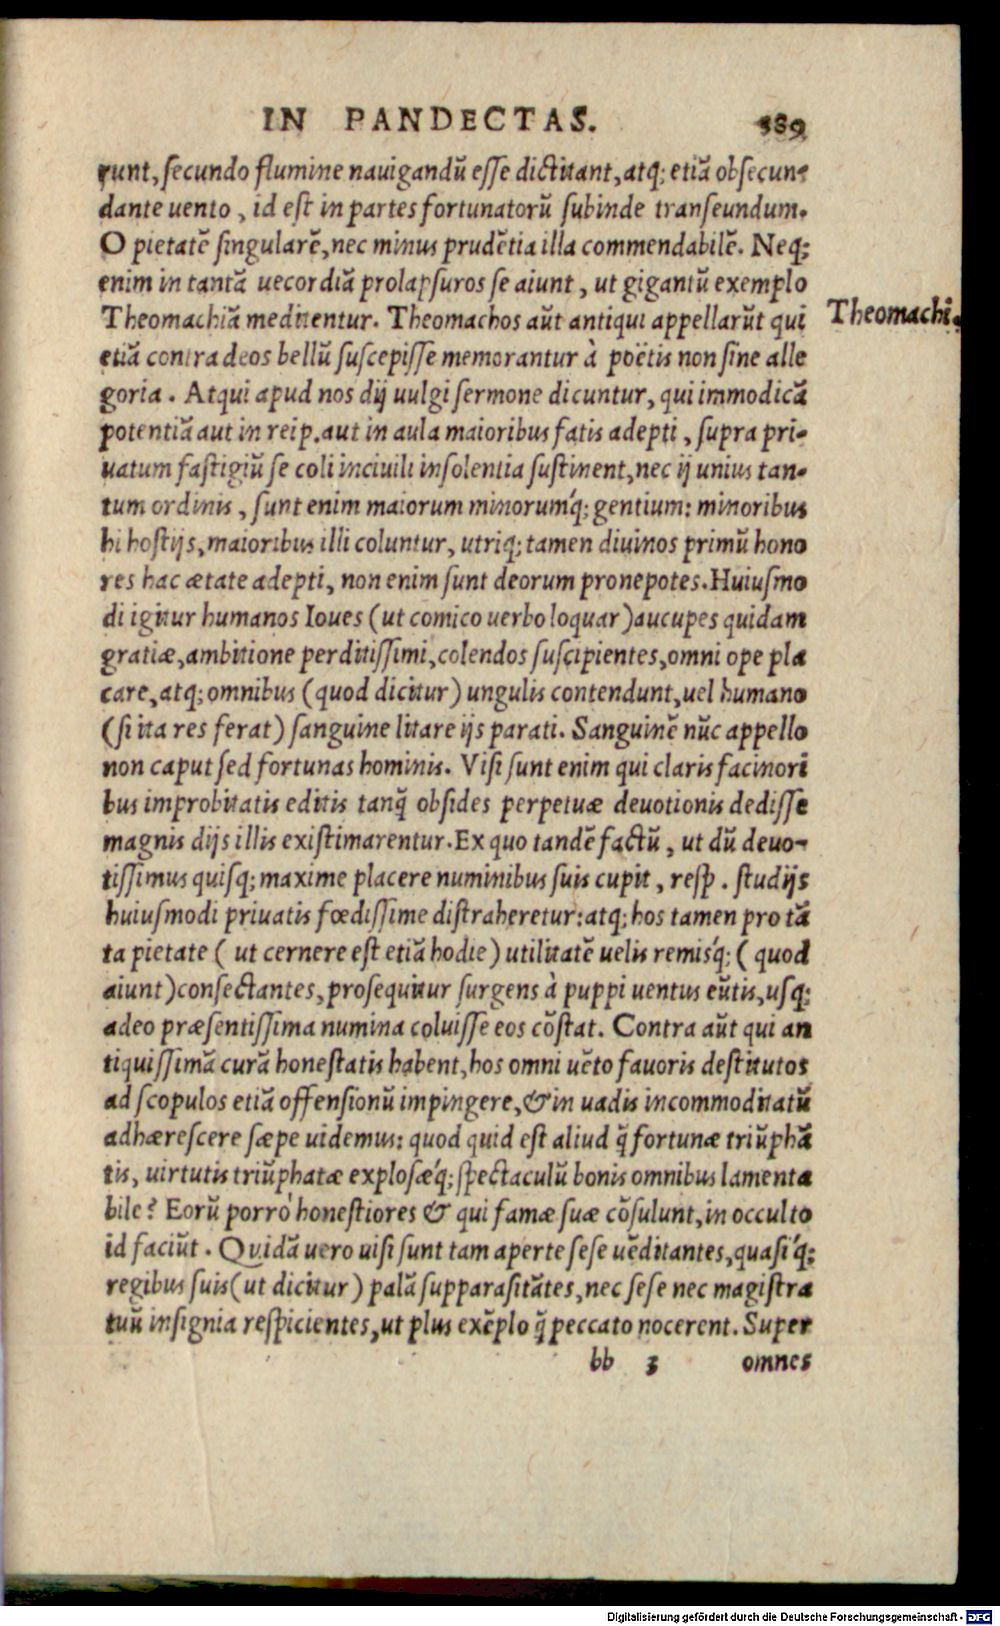 IN PANDECTAS. 389
runt, secundo flumine nauigandũ esse dictitant, atq; etiã obsecun-
dante uento, id est in partes fortunatorũ subinde transeundum.
O pietatẽ singularẽ, nec minus prudẽtia illa commendabilẽ. Neq;
enim in tantã uecordiã prolapsuros se aiunt, ut gigantũ exemplo
Theomachiã meditentur. Theomachos aũt antiqui appellarũt qui
Theomachi.
etiã contra deos bellũ suscepisse memorantur à poëtis non sine alle
goria. Atqui apud nos dij uulgi sermone dicuntur, qui immodicã
potentiã aut in reip. aut in aula maioribus fatis adepti, supra pri-
uatum fastigiũ se coli inciuili insolentia sustinent, nec ij unius tan-
tum ordinis, sunt enim maiorum minorumq́; gentium: minoribus
hi hostijs, maioribus illi coluntur, utriq; tamen diuinos primũ hono
res hac ætate adepti, non enim sunt deorum pronepotes. Huiusmo
di igitur humanos Ioues (ut comico uerbo loquar) aucupes quidam
gratiæ, ambitione perditissimi, colendos suscipientes, omni ope pla
care, atq; omnibus (quod dicitur) ungulis contendunt, uel humano
(si ita res ferat) sanguine litare ijs parati. Sanguinẽ nũc appello
non caput sed fortunas hominis. Visi sunt enim qui claris facinori
bus improbitatis editis tanq̃ obsides perpetuæ deuotionis dedisse
magnis dijs illis existimarentur. Ex quo tandẽ factũ, ut dũ deuo-
tissimus quisq; maxime placere numinibus suis cupit, resp. studijs
huiusmodi priuatis fœdissime distraheretur: atq; hos tamen pro tã
ta pietate (ut cernere est etiã hodie) utilitatẽ uelis remisq́; (quod
aiunt) consectantes, prosequitur surgens à puppi uentus eũtis, usq;
adeo præsentissima numina coluisse eos cõstat. Contra aũt qui an
tiquissimã curã honestatis habent, hos omni uẽto fauoris destitutos
ad scopulos etiã offensionũ impingere, & in uadis incommoditatũ
adhærescere sæpe uidemus: quod quid est aliud q̃ fortunæ triũphã
tis, uirtutis triũphatæ explosæq́; spectaculũ bonis omnibus lamenta
bile? Eorũ porrò honestiores & qui famæ suæ cõsulunt, in occulto
id faciũt. Quidã uero uisi sunt tam aperte sese uẽditantes, quasiq́;
regibus suis (ut dicitur) palã supparasitãtes, nec sese nec magistra
tuũ insignia respicientes, ut plus exẽplo q̃ peccato nocerent. Super
bb 3 omnes
Digitalisierung gefördert durch die Deutsche Forschungsgemeinschaft - DFG